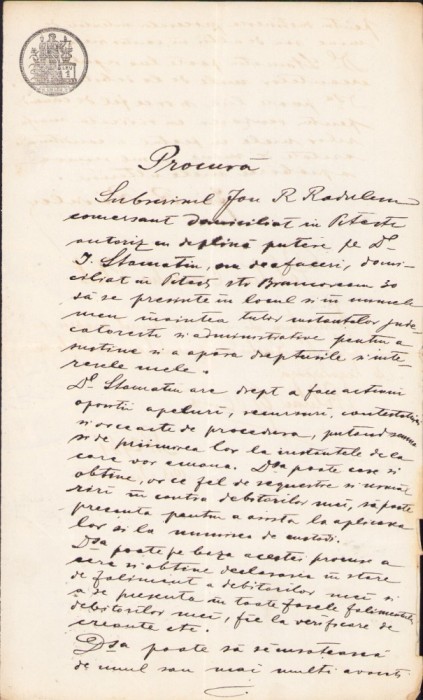 Procură
Subsemnatul Ion R Radulescu
comersant domiciliat in Pitesti
autoriz cu deplină putere pe Dl
I. Stamatin, om de afaceri, domi-
ciliat in Pitesti str Brancoveanu 30
să se presinte in locul si in numele
meu inaintea tutor instantelor jude-
catoresti si administrative pentru a
sustine si a apăra drepturile si inte-
resele mele.
Dl Stamatin are drept a face actiuni
opozitii apeluri, recursuri, contestatii
si orce acte de procedura, putand semna
si de primirea lor la instantele de la
care vor emana. Dsa poate cere si
obtine, or ce fel de sequestre si urmă-
riri in contra debitorilor mei, să poate
presenta pentru a asista la aplicarea
lor si la numirea de custozi.
Dsa poate pe baza acestei procuri a
cere si obtine declararea in stare
de faliment a debitorilor mei si
a se presenta in toate fasele falimentului
debitorilor mei, fie la verificare de
creante etc.
Dsa poate să se insotească
de unul sau mai multi avocati